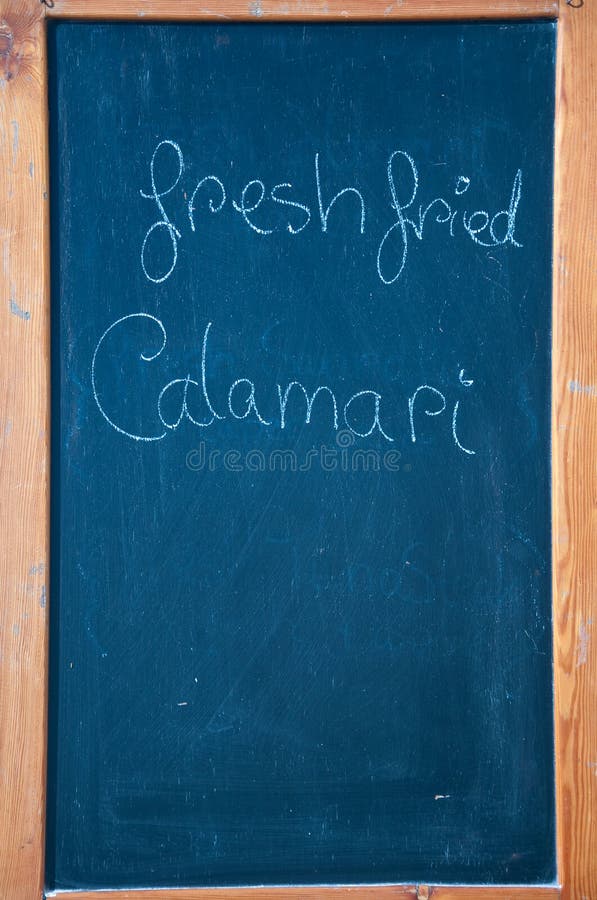 fresh fried
Calamari
dreamstime